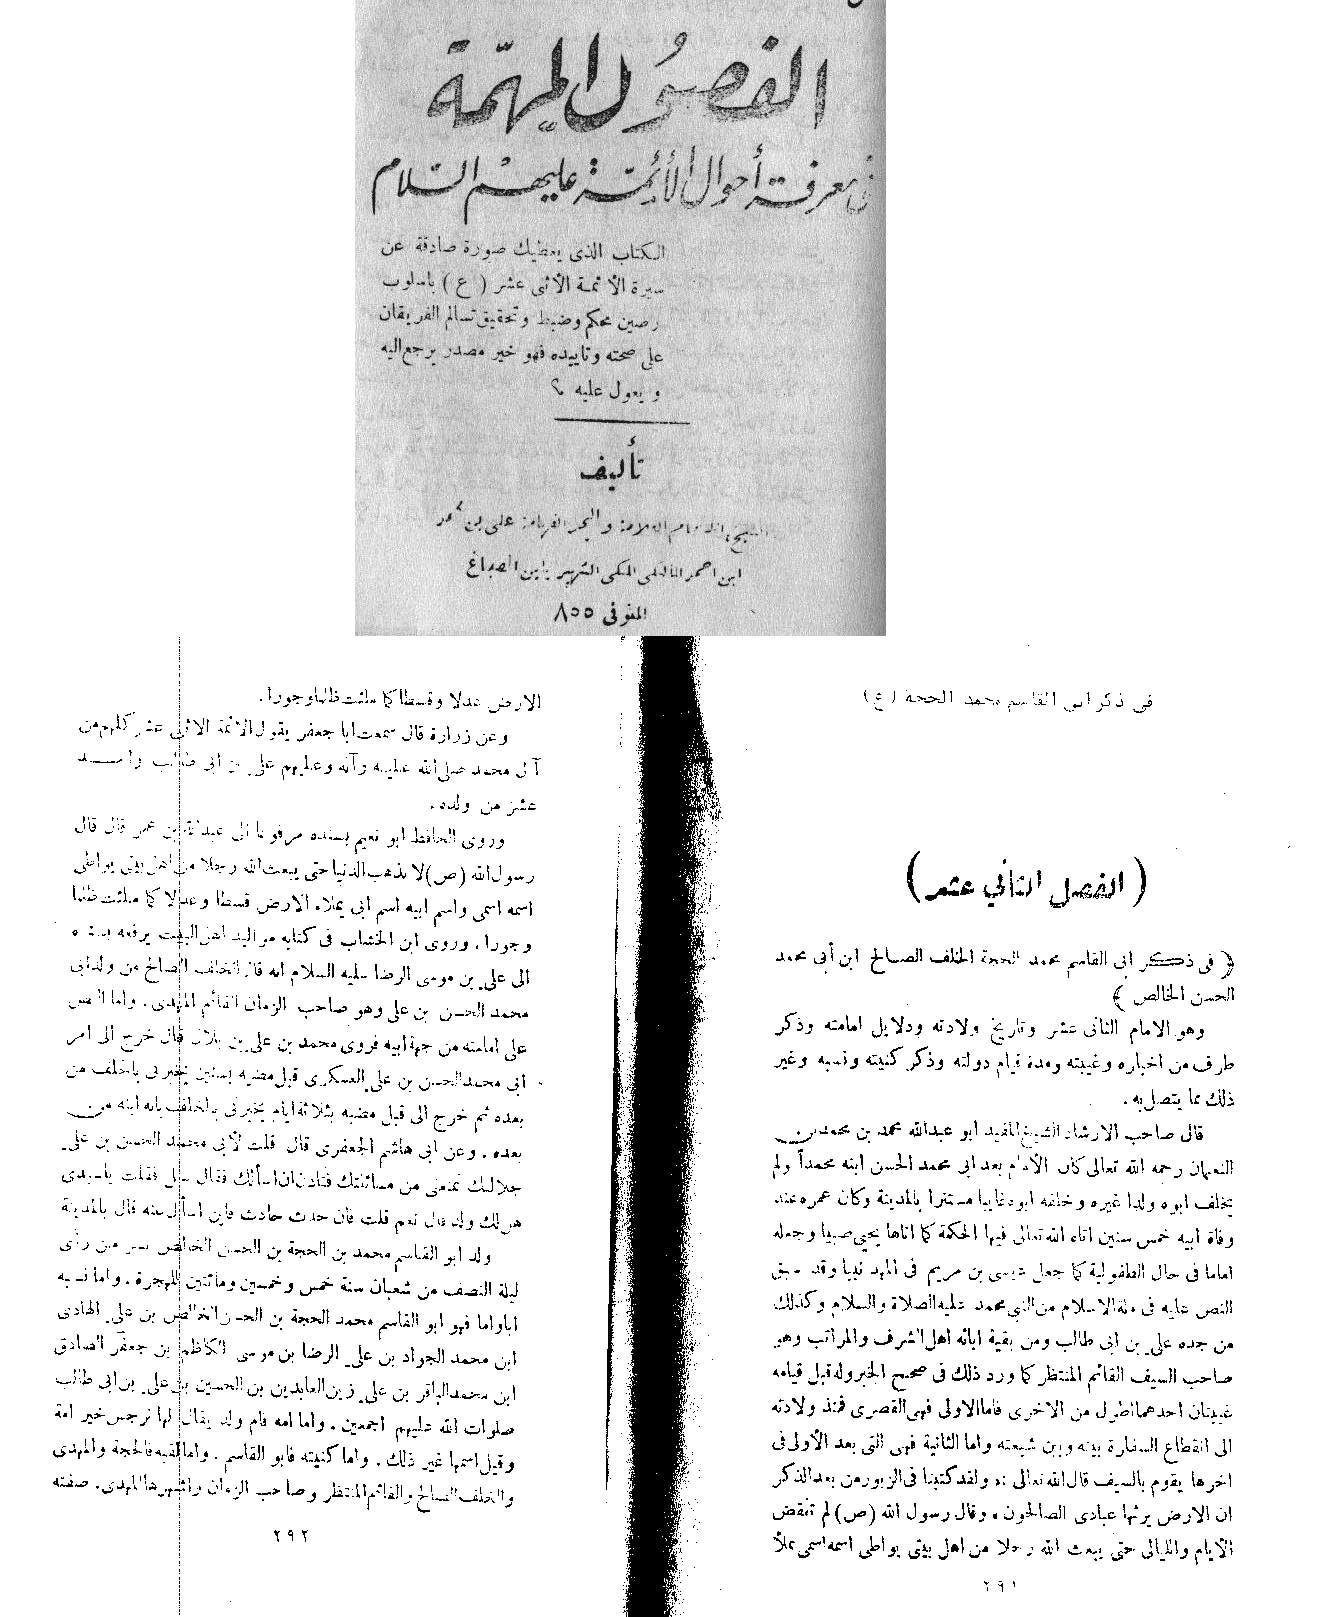 الفصول المهمّة
في معرفة أحوال الأئمّة عليهم السّلام
الكتاب الذي يعطيك صورة صادقة عن
سيرة الأئمة الأثنى عشر (ع) باسلوب
رصين محكم وضبط وتحقيق تسالم الفريقان
على صحته وتاييده فهو خير مصدر يرجع اليه
ويعول عليه
تأليف
الشيخ الامام العلامة والبحر الفهامة على بن محمد
ابن احمد المالكى المكى الشهير بابن الصباغ
المتوفى ٨٥٥
فى ذكر ابى القاسم محمد الحجة (ع)
( الفصل الثاني عشر )
﴿ فى ذكر ابى القاسم محمد الحجة الخلف الصالح ابن أبى محمد
الحسن الخالص ﴾
وهو الامام الثانى عشر وتاريخ ولادته ودلايل امامته وذكر
طرف من اخباره وغيبته ومدة قيام دولته وذكر كنيته ونسبه وغير
ذلك مما يتصل به.
قال صاحب الارشاد الشيخ المفيد ابو عبدالله محمد بن محمد بن
النعمان رحمه الله تعالى كان الأمام بعد ابى محمد الحسن ابنه محمداً ولم
يخلف ابوه ولدا غيره وخلفه ابوه غايبا مستترا بالمدينة وكان عمره عند
وفاة ابيه خمس سنين اتاه الله تعالى فيها الحكمة كما اتاها يحيى صبيا وجعله
اماما فى حال الطفولية كما جعل عيسى بن مريم فى المهد نبيا وقد سبق
النص عليه فى ملة الاسلام من النبى محمد عليه الصلاة والسلام وكذلك
من جده على بن ابى طالب ومن بقية ابائه اهل الشرف والمراتب وهو
صاحب السيف القائم المنتظر كما ورد ذلك فى صحيح الخبر وله قبل قيامه
غيبتان احدهما اطول من الاخرى فاما الاولى فهى القصرى فمنذ ولادته
الى انقطاع السفارة بينه وبين شيعته واما الثانية فهى التى بعد الأولى فى
اخرها يقوم بالسيف قال الله تعالى ولقد كتبنا فى الزبور من بعد الذكر
ان الارض يرثها عبادى الصالحون. وقال رسول الله (ص) لم تنقض
الأيام والليالى حتى يبعث الله رجلا من اهل بيتى يواطى اسمه اسمى يملأ
٢٩١
الارض عدلا وقسطا كما ملئت ظلما وجورا.
وعن زرارة قال سمعت ابا جعفر يقول الائمة الاثنى عشر كلهم من
آل محمد صلى الله عليه وآله وعليهم على بن ابى طالب واحد
عشر من ولده.
وروى الحافظ ابو نعيم بسنده مرفوعا الى عبدالله بن عمر قال قال
رسول الله (ص) لا يذهب الدنيا حتى يبعث الله رجلا من اهل بيتى يواطى
اسمه اسمى واسم ابيه اسم ابى يملاء الارض قسطا وعدلا كما ملئت ظلما
وجورا. وروى ابن الخشاب فى كتابه مواليد اهل البيت يرفعه بسنده
الى على بن موسى الرضا عليه السلام انه قال الخلف الصالح من ولد ابى
محمد الحسن بن على وهو صاحب الزمان القائم المهدى. واما النص
على امامته من جهة ابيه فروى محمد بن على بن بلال قال خرج الى امر
ابى محمد الحسن بن على العسكرى قبل مضيه بسنتين يخبرنى بالخلف من
بعده ثم خرج الى قبل مضيه بثلاثة ايام يخبرنى بالخلف بانه ابنه من
بعده. وعن ابى هاشم الجعفرى قال قلت لأبى محمد الحسن بن على
جلالتك تمنعنى من مسائلتك فتاذن ان اسألك فقال سل فقلت ياسيدى
هل لك ولد قال نعم قلت فان حدث حادث فاين اسأل عنه قال بالمدينة
ولد ابو القاسم محمد بن الحجة بن الحسن الخالص بسر من رأى
ليلة النصف من شعبان سنة خمس وخمسين ومائتين للهجرة. واما نسبه
ابا واما فهو ابو القاسم محمد الحجة بن الحسن الخالص بن على الهادى
ابن محمد الجواد بن على الرضا بن موسى الكاظم بن جعفر الصادق
ابن محمد الباقر بن على زين العابدين بن الحسين بن على بن ابى طالب
صلوات الله عليهم اجمعين. واما امه فام ولد يقال لها نرجس خير امة
وقيل اسمها غير ذلك. واما كنيته فابو القاسم. واما لقبه فالحجة والمهدى
والخلف الصالح والقائم المنتظر وصاحب الزمان واشهرها المهدى. صفته
٢٩٢